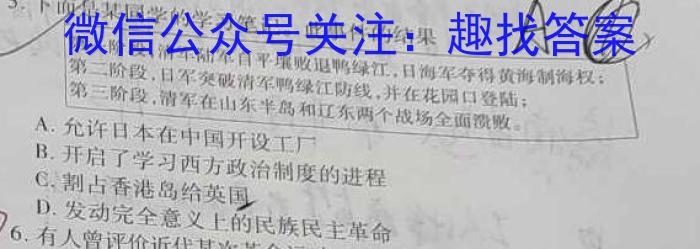 5. 下面是某同学的学习笔记
结果
微信公众号关注：趣找答案
清军陆军自平壤败退鸭绿江，日海军夺得黄海制海权；
第二阶段，日军突破清军鸭绿江防线，并在花园口登陆；
第三阶段，清军在山东半岛和辽东两个战场全面溃败。
A. 允许日本在中国开设工厂
B. 开启了学习西方政治制度的进程
C. 割占香港岛给英国
D. 发动完全意义上的民族民主革命
6. 有人曾评价近代某次革命